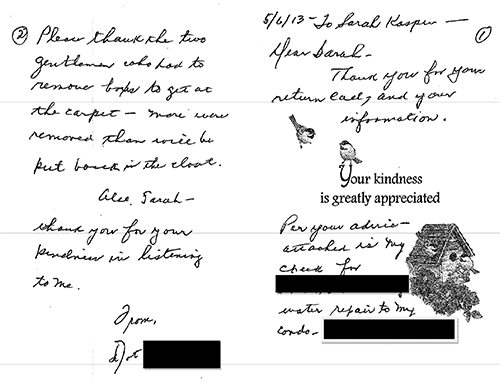 5/6/13 - To Sarah Kasper -
①
Dear Sarah -
Thank you for your
return call, and your
information.
Your kindness
is greatly appreciated
Per your advice -
attached is my
check for
water repair to my
condo -
②
Please thank the two
gentlemen who had to
remove boxes to get at
the carpet - more were
removed than will be
put back in the closet.
Also, Sarah -
thank you for your
kindness in listening
to me.
From,
Dot